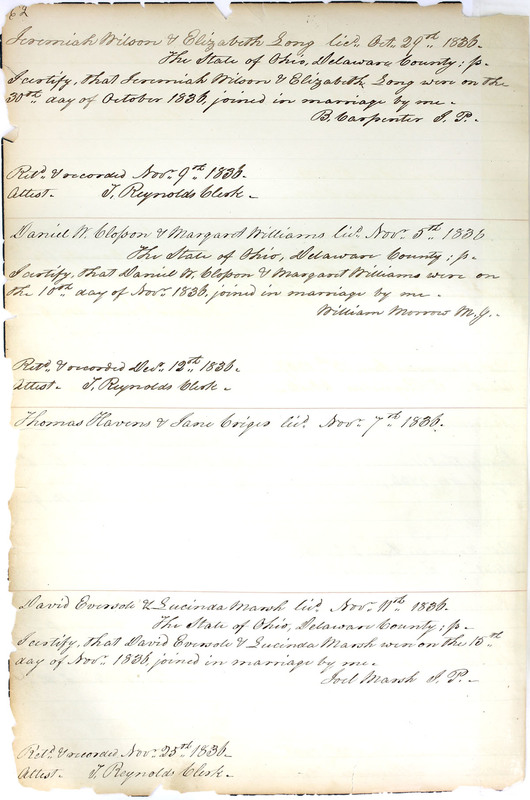 62
Jeremiah Wilson & Elizabeth Long licd. Octr. 29th. 1836.
The State of Ohio, Delaware County; ss.
I certify, that Jeremiah Wilson & Elizabeth Long were on the
30th day of October 1836, joined in marriage by me.
B. Carpenter J. P.
Retd. & recorded Novr. 9th. 1836.
Attest. T. Reynolds Clerk.
Daniel W. Closson & Margaret Williams licd. Novr. 5th. 1836
The State of Ohio, Delaware County; ss.
I certify, that Daniel W. Closson & Margaret Williams were on
the 10th day of Novr. 1836, joined in marriage by me.
William Morrow M.G.
Retd. & recorded Decr. 12th 1836.
Attest. T. Reynolds Clerk.
Thomas Havens & Jane licd. Novr. 7th 1836.
David Eversole & Lucinda Marsh licd. Novr. 11th 1836.
The State of Ohio, Delaware County; ss.
I certify, that David Eversole & Lucinda Marsh were on the 15th
day of Novr. 1836, joined in marriage by me.
Joel Marsh J. P.
Retd. & recorded Novr. 25th 1836.
Attest. T. Reynolds Clerk.